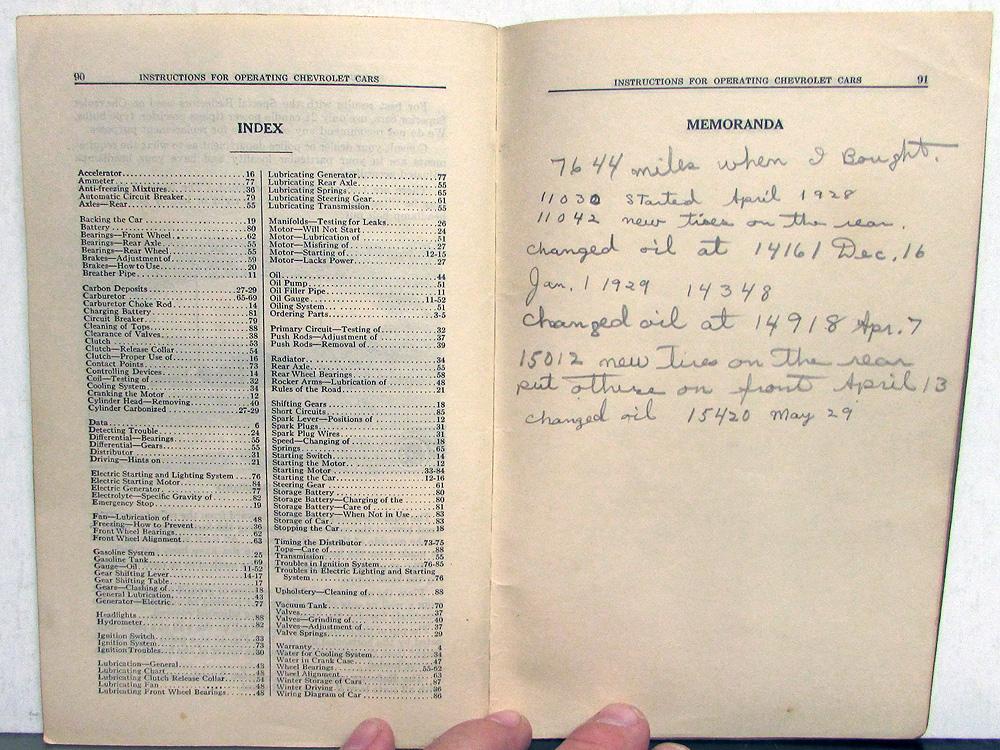 90 INSTRUCTIONS FOR OPERATING CHEVROLET CARS
INDEX
Accelerator 16
Ammeter 77
Anti-freezing Mixtures 36
Automatic Circuit Breaker 79
Axles—Rear 55
Backing the Car 19
Battery 80
Bearings—Front Wheel 62
Bearings—Rear Axle 55
Bearings—Rear Wheel 55
Brakes—Adjustment of 59
Brakes—How to Use 20
Breather Pipe 11
Carbon Deposits 27-29
Carburetor 65-69
Carburetor Choke Rod 14
Charging Battery 81
Circuit Breaker 79
Cleaning of Tops 88
Clearance of Valves 38
Clutch 53
Clutch—Release Collar 54
Clutch—Proper Use of 16
Contact Points 73
Controlling Devices 14
Coil—Testing of 32
Cooling System 34
Cranking the Motor 12
Cylinder Head—Removing 40
Cylinder Carbonized 27-29
Data 6
Detecting Trouble 24
Differential—Bearings 55
Differential—Gears 55
Distributor 31
Driving—Hints on 21
Electric Starting and Lighting System 76
Electric Starting Motor 84
Electric Generator 77
Electrolyte—Specific Gravity of 82
Emergency Stop 19
Fan—Lubrication of 48
Freezing—How to Prevent 36
Front Wheel Bearings 62
Front Wheel Alignment 63
Gasoline System 25
Gasoline Tank 69
Gauge—Oil 11-52
Gear Shifting Lever 14-17
Gear Shifting Table 17
Gears—Clashing of 18
General Lubrication 43
Generator—Electric 77
Headlights 88
Hydrometer 82
Ignition Switch 33
Ignition System 73
Ignition Troubles 30
Lubrication—General 43
Lubricating Chart 48
Lubricating Clutch Release Collar 54
Lubricating Fan 48
Lubricating Front Wheel Bearings 48
Lubricating Generator 77
Lubricating Rear Axle 55
Lubricating Springs 65
Lubricating Steering Gear 61
Lubricating Transmission 55
Manifolds—Testing for Leaks 26
Motor—Will Not Start 24
Motor—Lubrication of 51
Motor—Misfiring of 27
Motor—Starting of 12-15
Motor—Lacks Power 27
Oil 44
Oil Pump 51
Oil Filler Pipe 11
Oil Gauge 11-52
Oiling System 51
Ordering Parts 3-5
Primary Circuit—Testing of 32
Push Rods—Adjustment of 37
Push Rods—Removal of 39
Radiator 34
Rear Axle 55
Rear Wheel Bearings 58
Rocker Arms—Lubrication of 48
Rules of the Road 21
Shifting Gears 18
Short Circuits 85
Spark Lever—Positions of 12
Spark Plugs 31
Spark Plug Wires 31
Speed—Changing of 18
Springs 65
Starting Switch 14
Starting the Motor 12
Starting Motor 33-84
Starting the Car 12-16
Steering Gear 61
Storage Battery 80
Storage Battery—Charging of the 80
Storage Battery—Care of 81
Storage Battery—When Not in Use 83
Storage of Car 83
Stopping the Car 18
Timing the Distributor 73-75
Tops—Care of 88
Transmission 55
Troubles in Ignition System 76-85
Troubles in Electric Lighting and Starting
System 76
Upholstery—Cleaning of 88
Vacuum Tank 70
Valves 37
Valves—Grinding of 40
Valves—Adjustment of 37
Valve Springs 29
Warranty 4
Water for Cooling System 34
Water in Crank Case 47
Wheel Bearings 55-62
Wheel Alignment 63
Winter Storage of Cars 87
Winter Driving 36
Wiring Diagram of Car 86
INSTRUCTIONS FOR OPERATING CHEVROLET CARS 91
MEMORANDA
7644 miles when I Bought.
11030 Started April 1928
11042 new tires on the rear.
changed oil at 14161 Dec. 16
Jan. 1 1929 14348
changed oil at 14918 Apr. 7
15012 new Tires on The rear
put others on front April 13
changed oil 15420 May 29